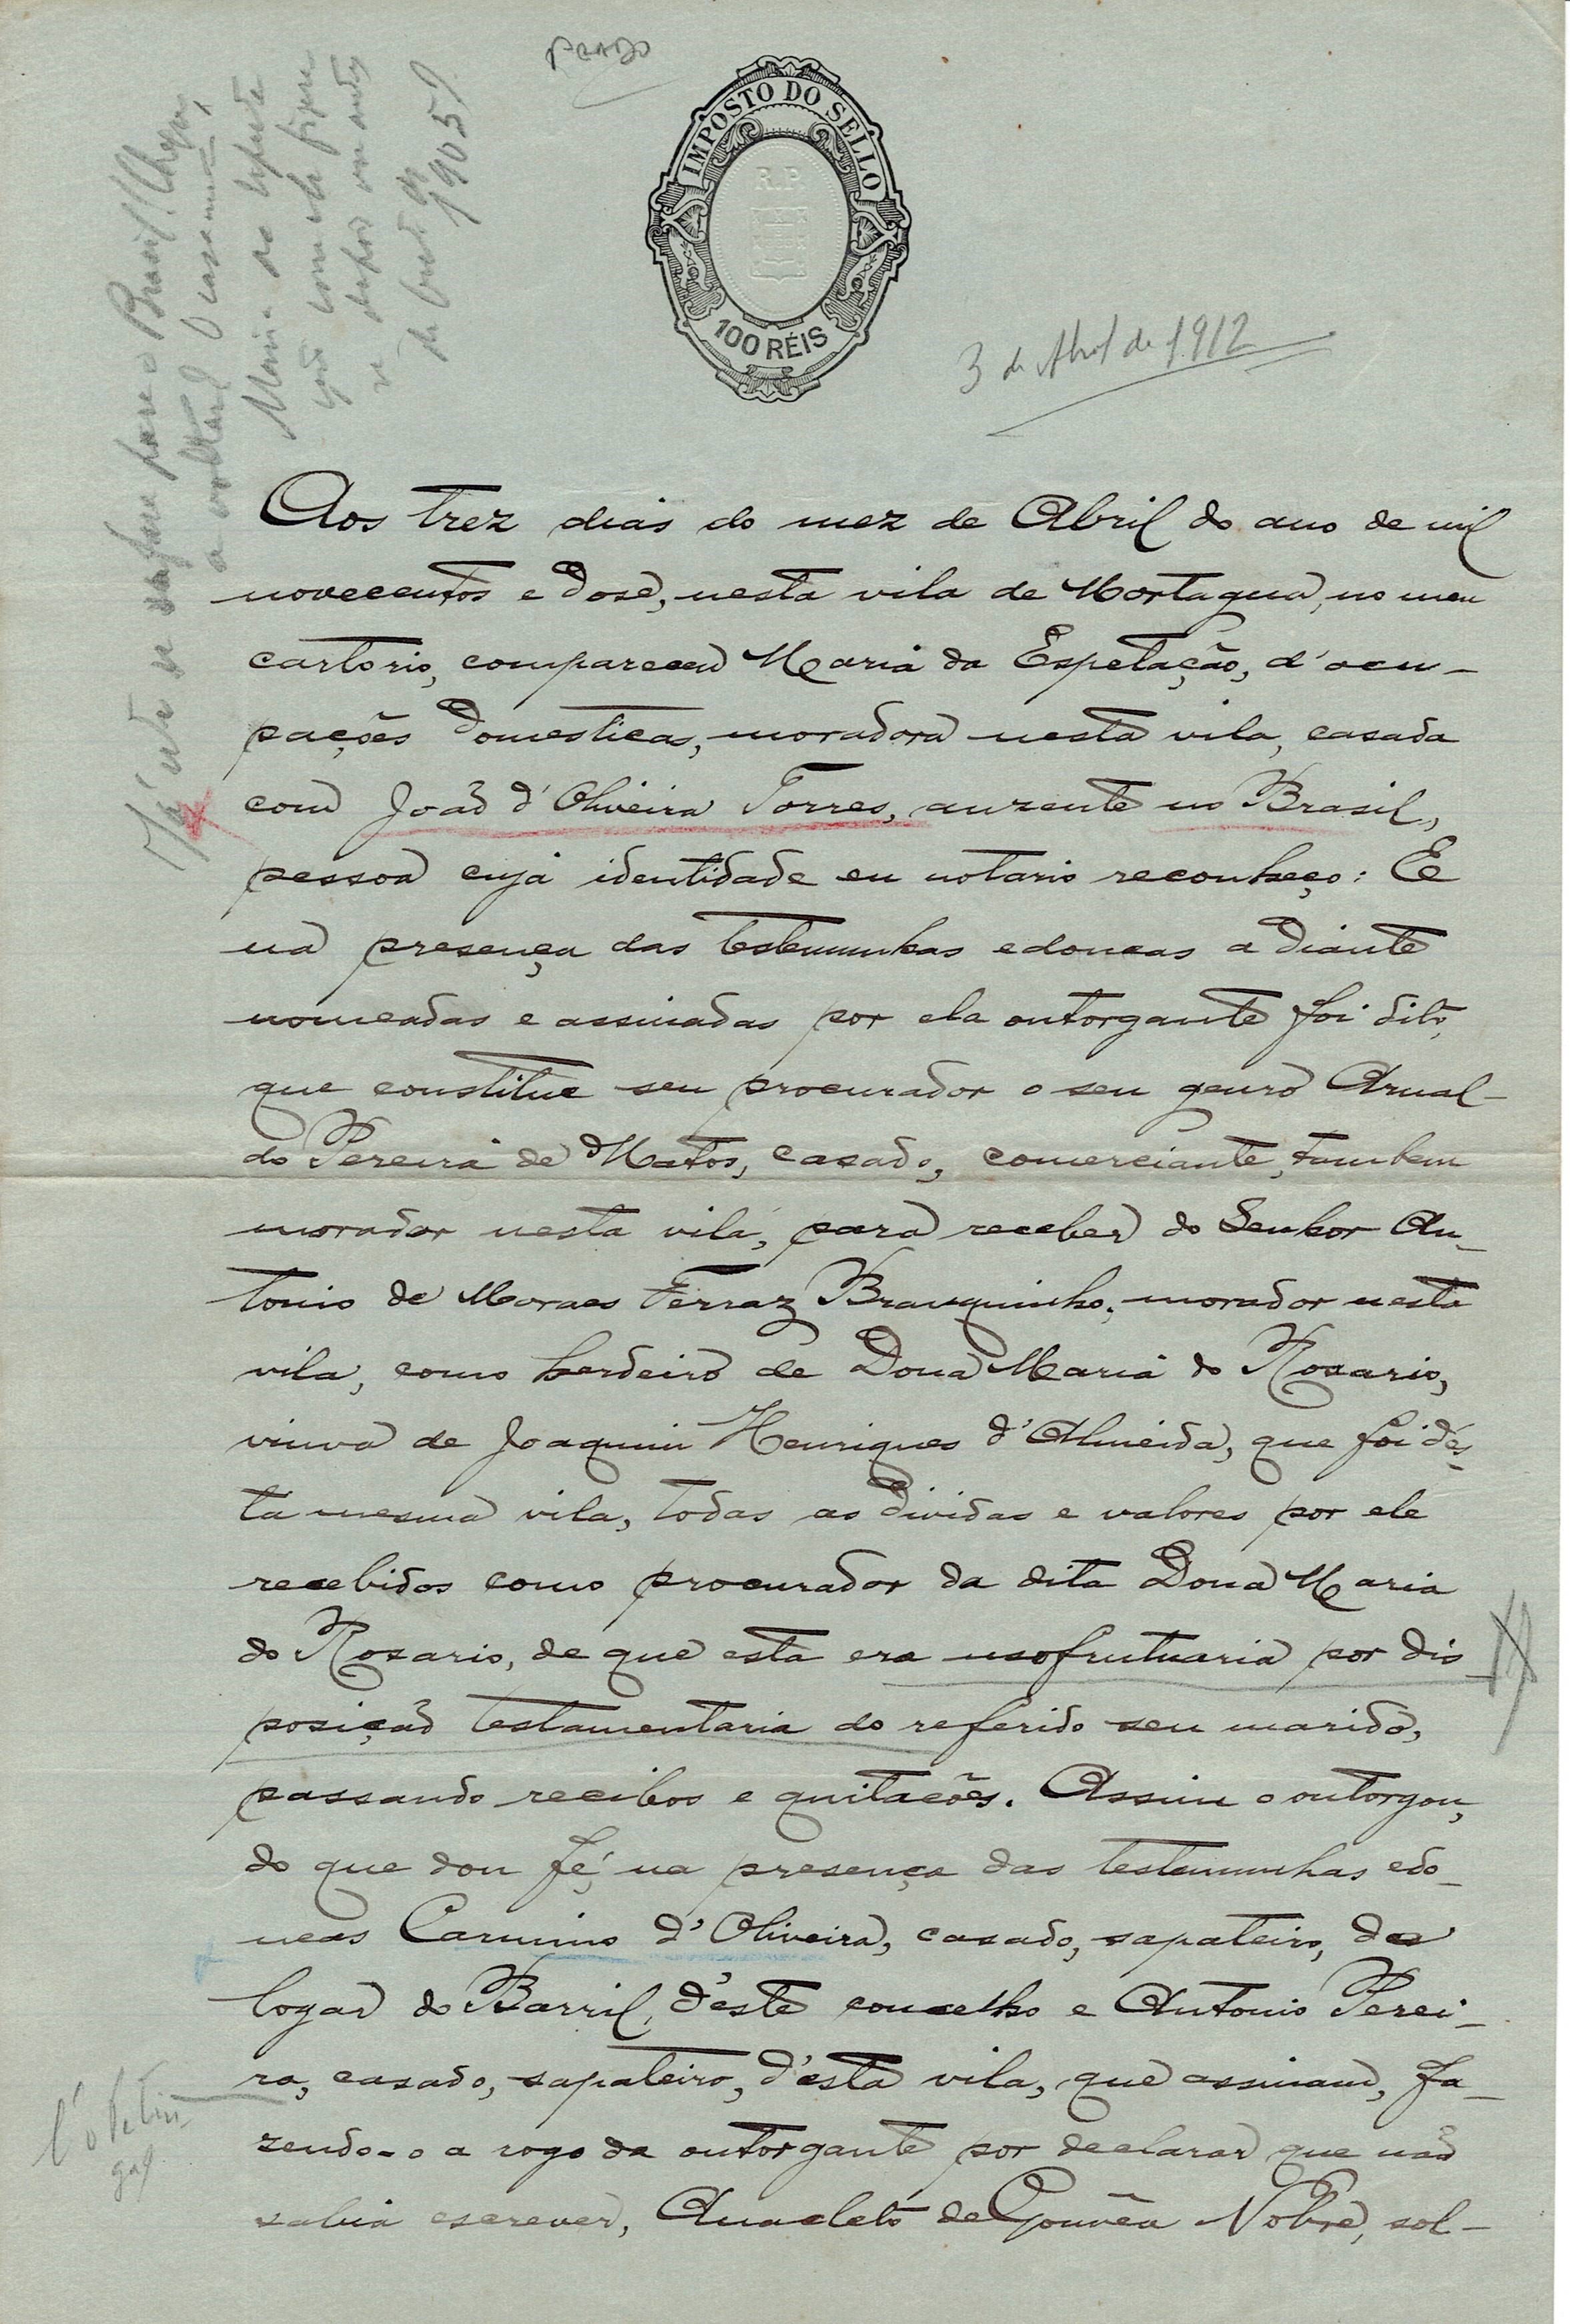 PRADO
IMPOSTO DO SELLO
R.P.
100 RÉIS
3 de Abril de 1912
Aos trez dias do mez de Abril do ano de mil
novecentos e dose, nesta vila de Mortagua, no meu
cartorio, compareceu Maria da Espetação, d'ocu-
pações domesticas, moradora nesta vila, casada
com João d'Oliveira Torres, auzente no Brasil,
pessoa cuja identidade eu notario reconheço: E
na presença das testemunhas edoneas a diante
nomeadas e assinadas por ela outorgante foi dito,
que constitue seu procurador o seu genro Arnal-
do Pereira de Matos, casado, comerciante, tambem
morador nesta vila, para receber do Senhor An-
tonio de Moraes Ferraz Branquinho, morador nesta
vila, como herdeiro de Dona Maria do Rosario,
viuva de Joaquim Henriques d'Almeida, que foi dés-
ta mesma vila, todas as dividas e valores por ele
recebidos como procurador da dita Dona Maria
do Rosario, de que esta era usofrutuaria por dis
posição testamentaria do referido seu marido,
passando recibos e quitacões. Assim o outorgou,
do que dou fé, na presença das testemunhas edo-
neas Carmino d'Oliveira, casado, sapateiro, do
logar do Barril, d'este concelho e Antonio Perei-
ra, casado, sapateiro, d'esta vila, que assinam, fa-
zendo-o a rogo da outorgante por declarar que não
sabia escrever, Anacleto de Gouvêa Nobre, sol-
para o Brasil
1905